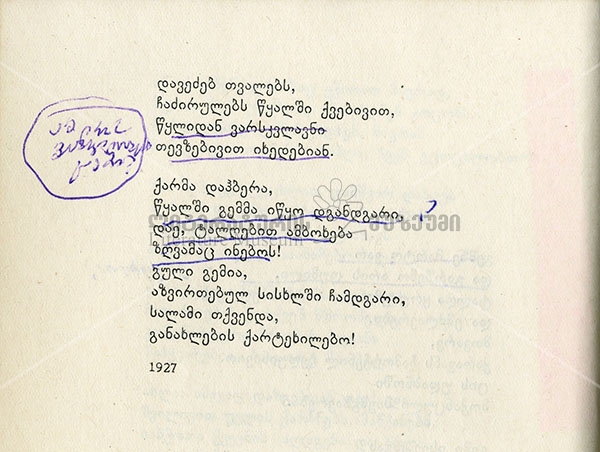 დავეძებ თვალებს,
ჩაძირულებს წყალში ქვებივით,
წყლიდან ვარსკვლავნი
თევზებივით იხედებიან.
ქარმა დაჰბერა,
წყალში გემმა იწყო დგანდგარი, ?
დაე, ტალღებით ამბოხება
ზღვამაც ინებოს!
გული გემია,
აზვირთებულ სისხლში ჩამდგარი,
სალამი თქვენდა,
განახლების ქარტეხილებო!
1927